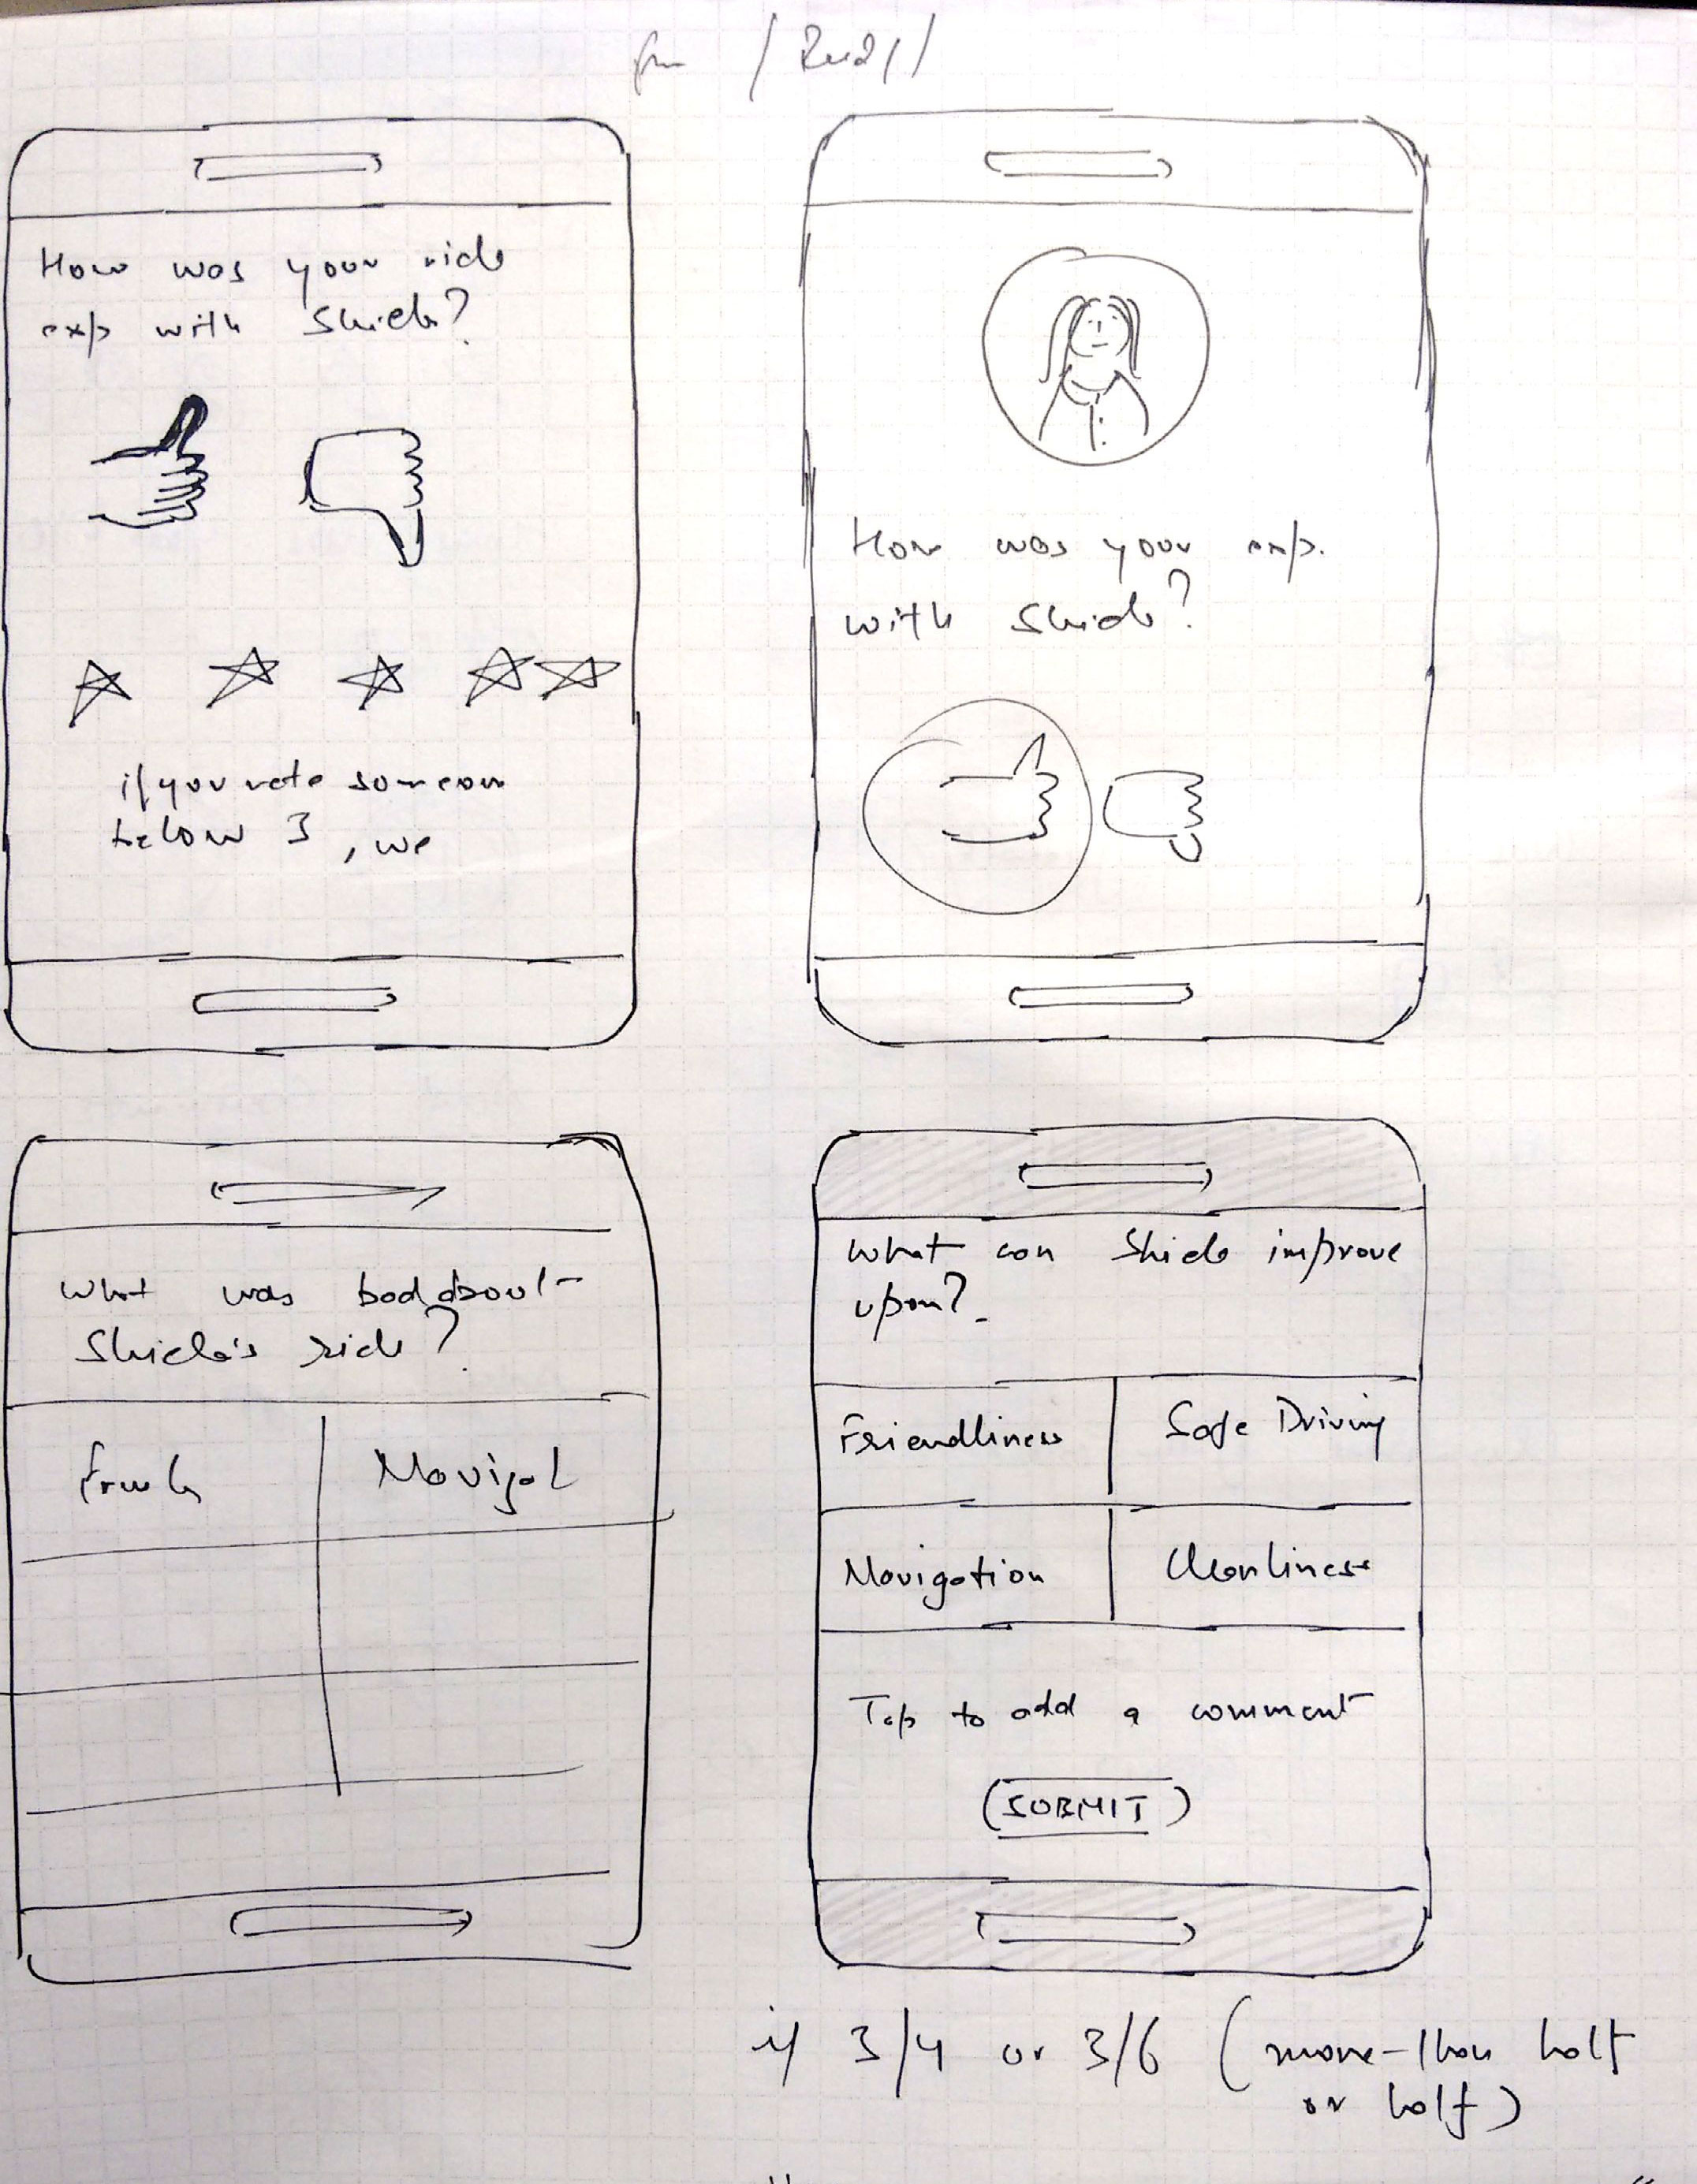 How was your ride
exp with Shiela?
if you rate someon
below 3, we
How was your exp.
with Shiela?
What was bad about
Shiela's ride?
What can Shiela improve
upon?
Friendliness
Safe Driving
Navigation
Cleanliness
Tap to add a comment
SUBMIT
if 3/4 or 3/6 (more-than half
or half)